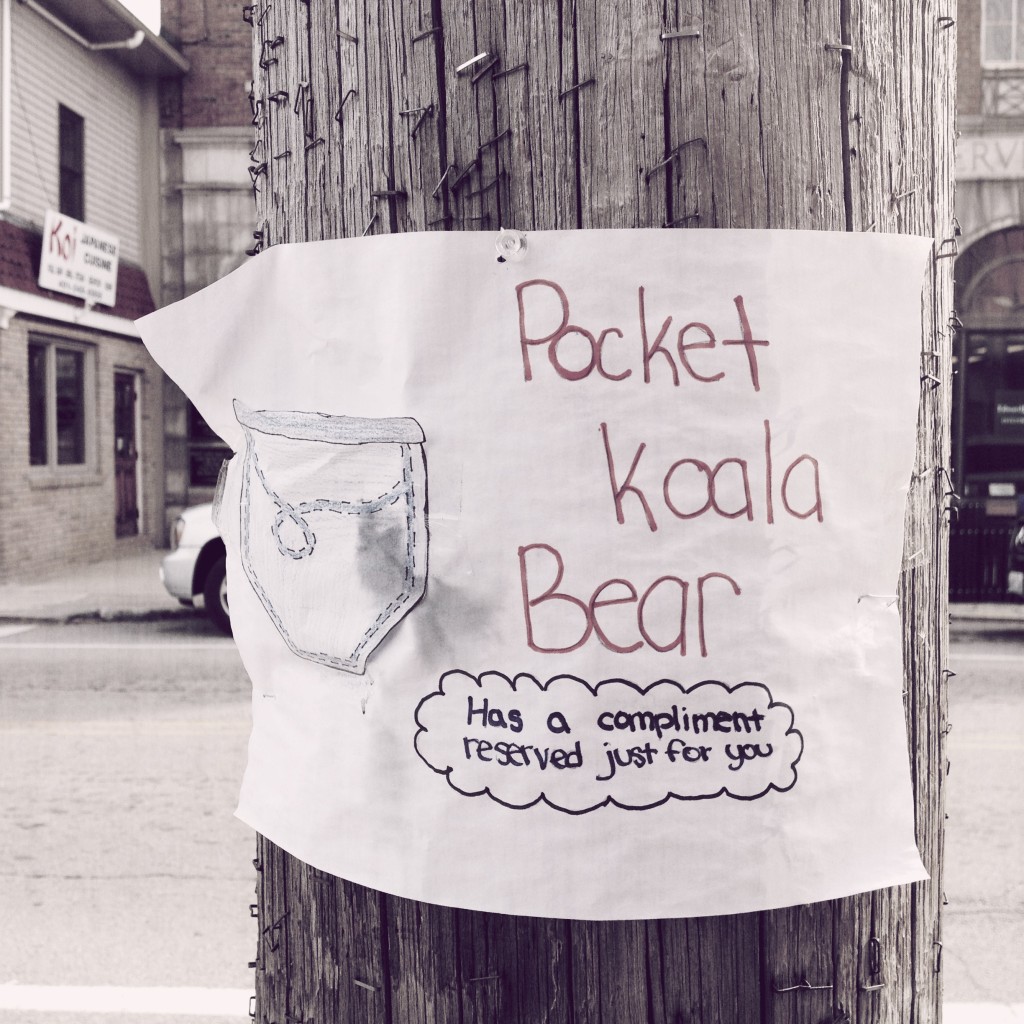 Koi
JAPANESE
CUISINE
Pocket
Koala
Bear
Has a compliment
reserved just for you